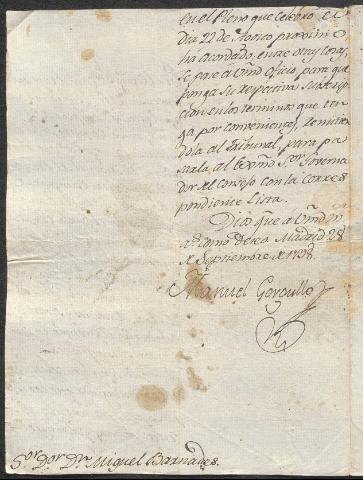 en el Pleno que celebró el
Dia 22 de Marzo proximo
ha acordado, entre otras cosas,
se pase a Vmd oficio, para que
ponga su respectiva Subscrip
cion en los terminos que ten
ga por conveniente, remitien
dola al Tribunal, para pa
sarla al Exmo Sor Governa
dor del Consejo con la corres
pondiente Lista.
Dios gue a Vmd m
as como deseo. Madrid 28
de Septiembre de 1798.
Manuel Gorgullo
Sor Dor Dn Miguel Barnades.